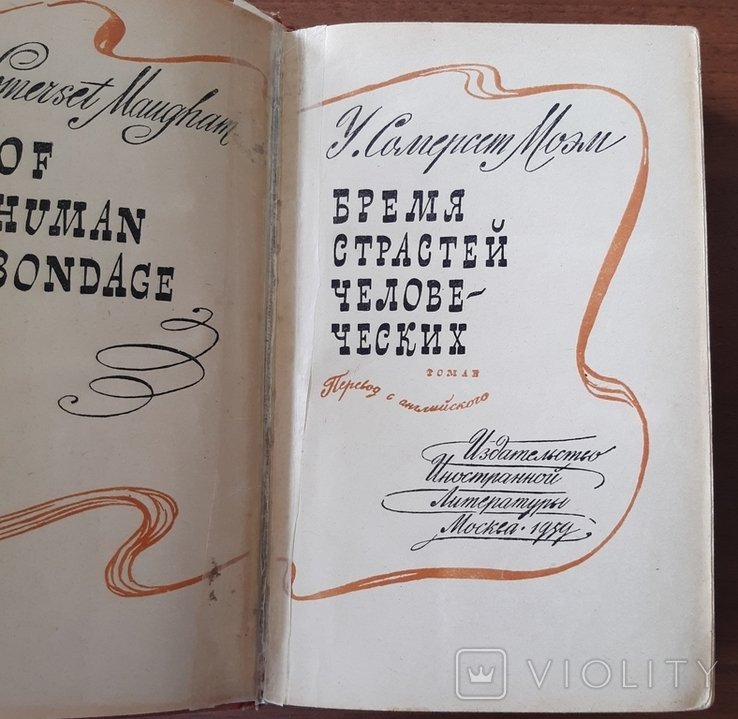 omerset Maugham
OF
HUMAN
BONDAGE
У. Сомерсет Моэм
БРЕМЯ
СТРАСТЕЙ
ЧЕЛОВЕ-
ЧЕСКИХ
РОМАН
Перевод с английского
Издательство
Иностранной
Литературы
Москва · 1959
VIOLITY